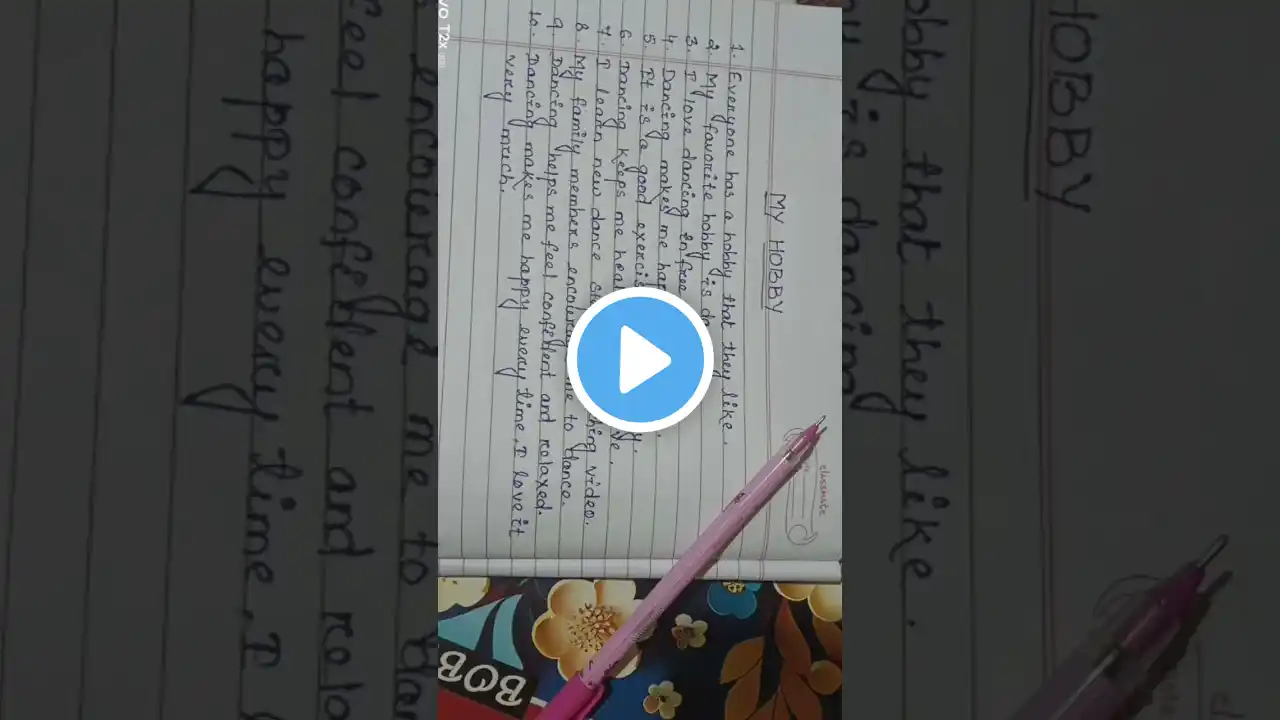 MY HOBBY
1. Everyone has a hobby that they like.
2. My favorite hobby is
3. I love dancing in free
4. Dancing makes me
5. It is a good
6. Dancing keeps me
7. I learn new dance video.
8. My family members to dance.
9. Dancing helps me feel confident and relaxed.
10. Dancing makes me happy every time. I love it
very much.
classmate
BOB
vo T2x
HOBBY
hobby that they like.
is dancing
encourage me to
feel confident and
happy every time. I